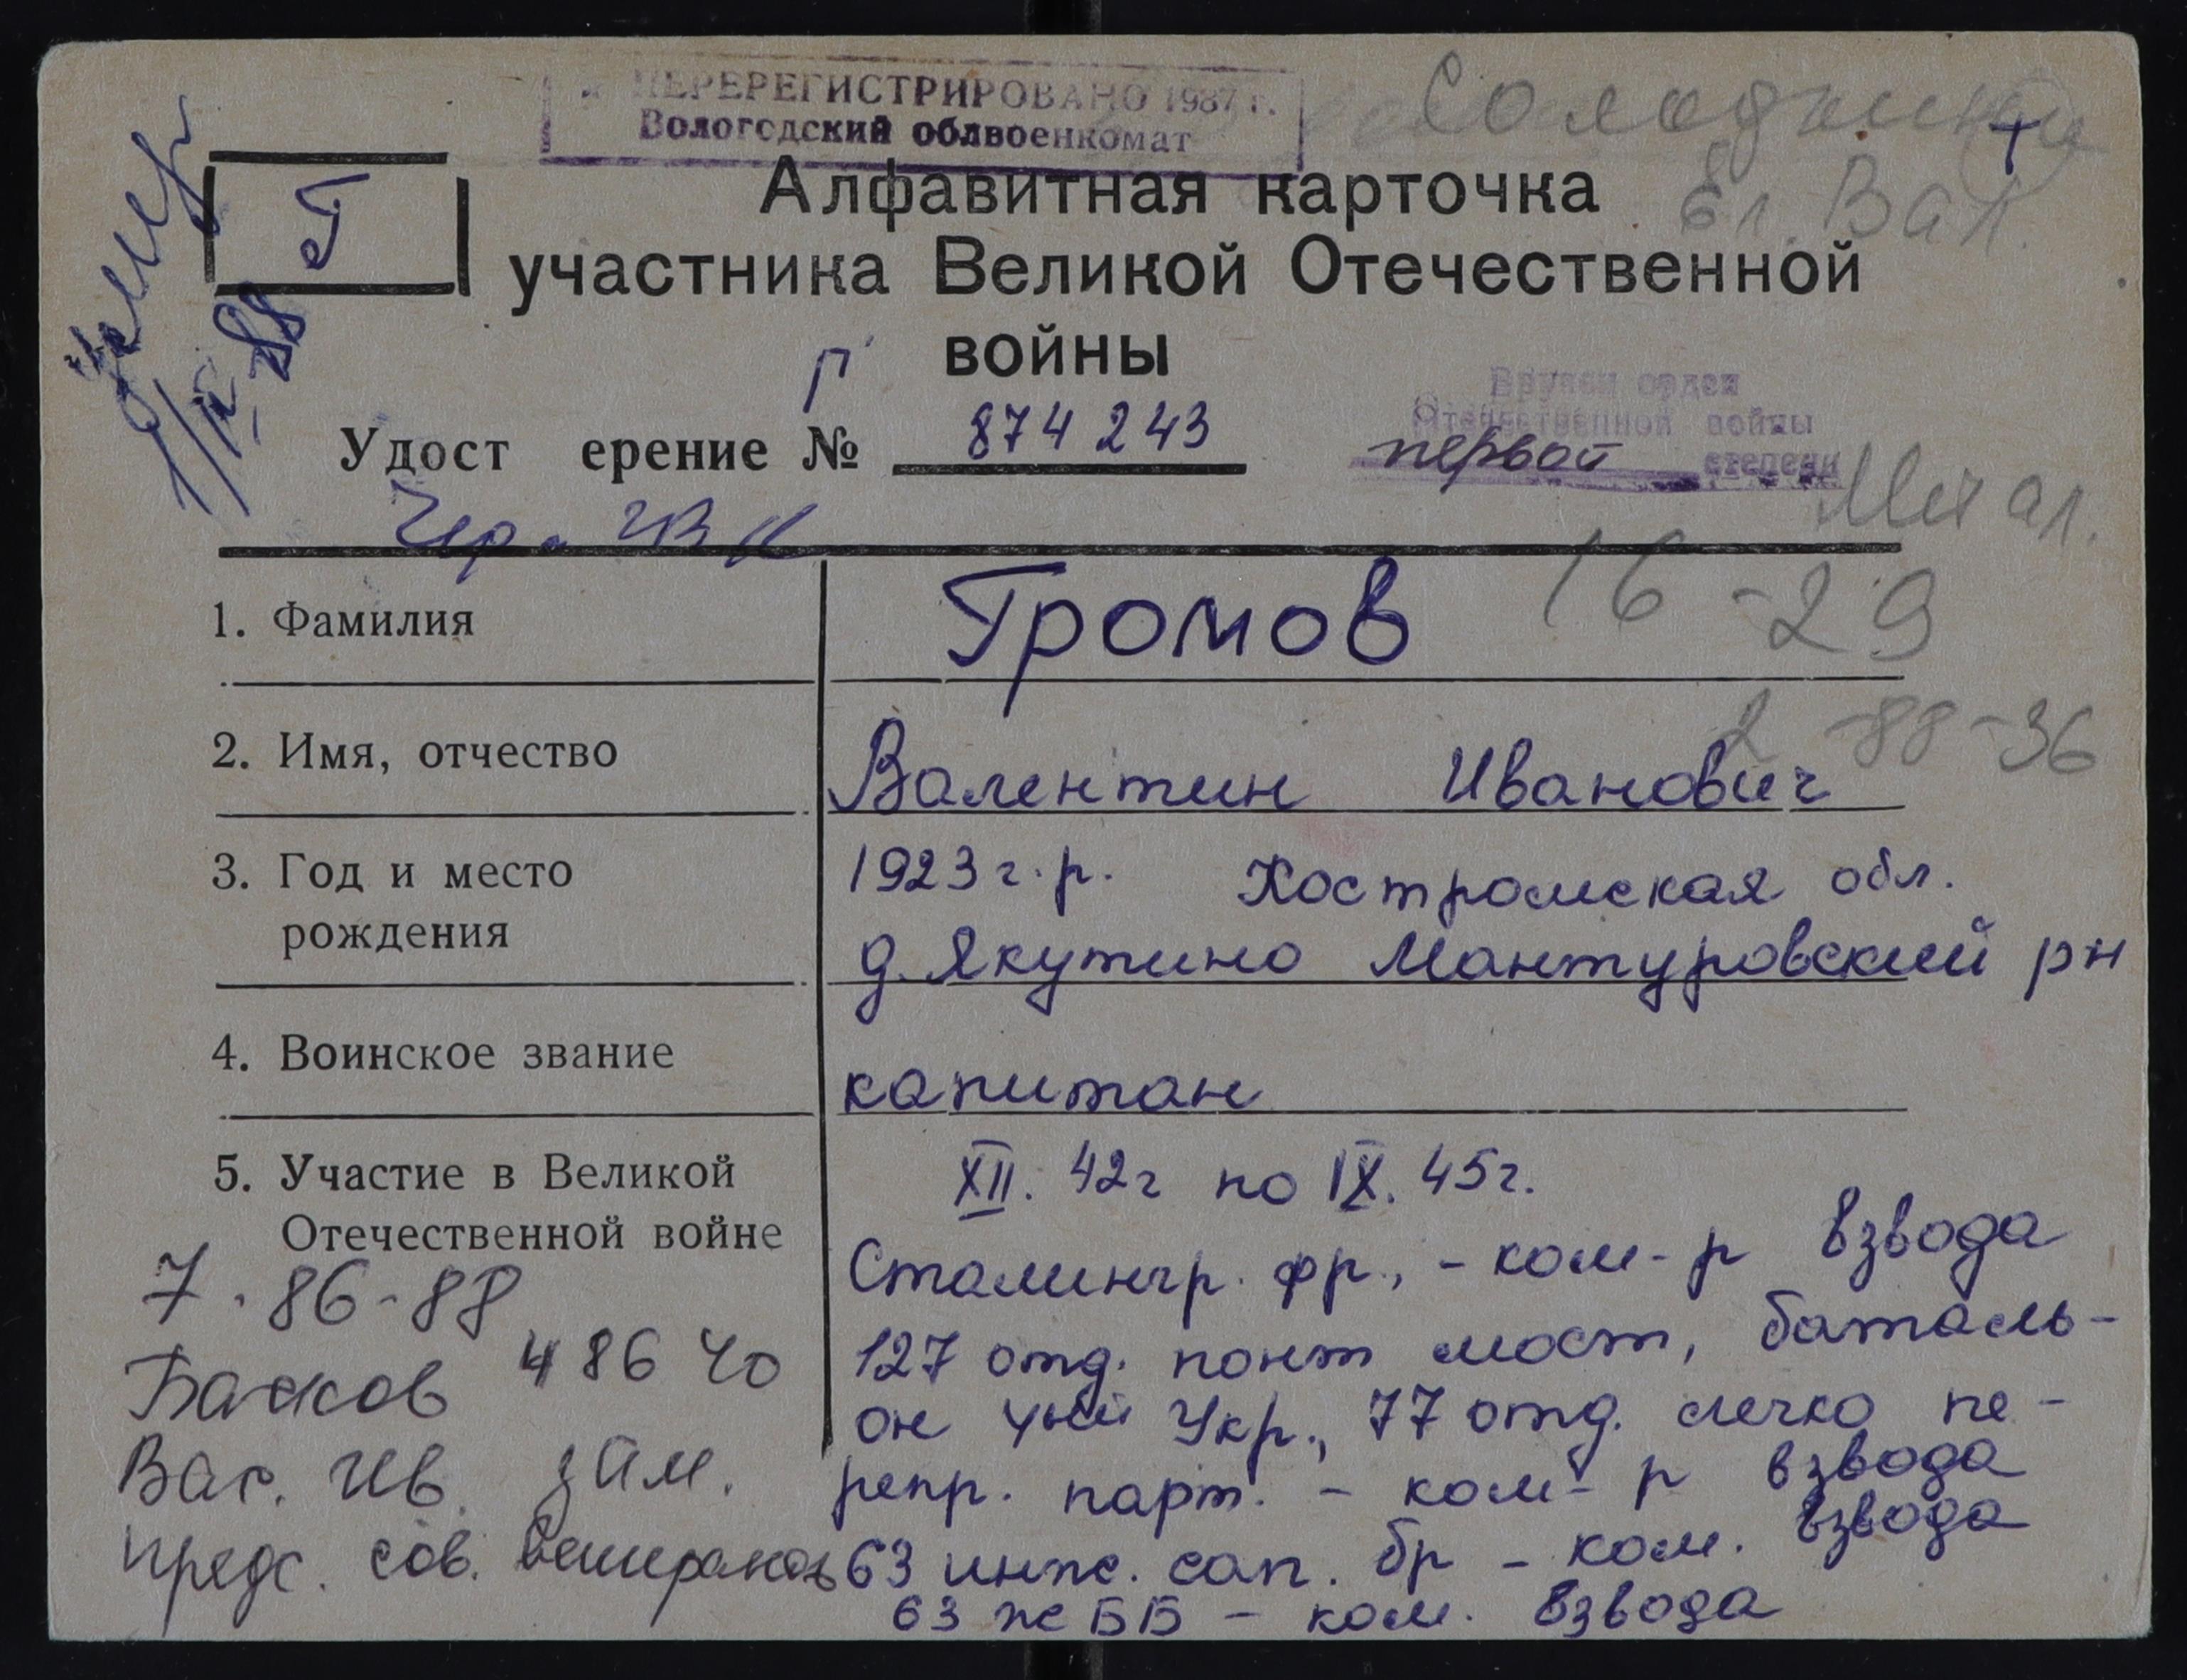 ПЕРЕРЕГИСТРИРОВАНО 1987 г.
Вологодский облвоенкомат
Г
Алфавитная карточка
Ел. Вал.
участника Великой Отечественной
войны
умер
1/IX-88
Г
Удост ерение № 874 243
Вручен орден
Отечественной войны
первой степени
1. Фамилия
Громов
16-29
2-88-36
2. Имя, отчество
Валентин Иванович
3. Год и место
рождения
1923 г.р. Костромская обл.
д. Якутино Мантуровский рн
4. Воинское звание
капитан
5. Участие в Великой
Отечественной войне
XII. 42г по IX. 45г.
Сталингр. фр., - ком-р взвода
127 отд. понт мост, баталь-
он 4ый Укр., 77 отд. легко пе-
репр. парт. - ком-р взвода
63 инж. сап. бр - ком. взвода
63 ж ББ - ком. взвода
7.86-88
48640
Вас. Ив. зам.
предс. сов. ветеранов